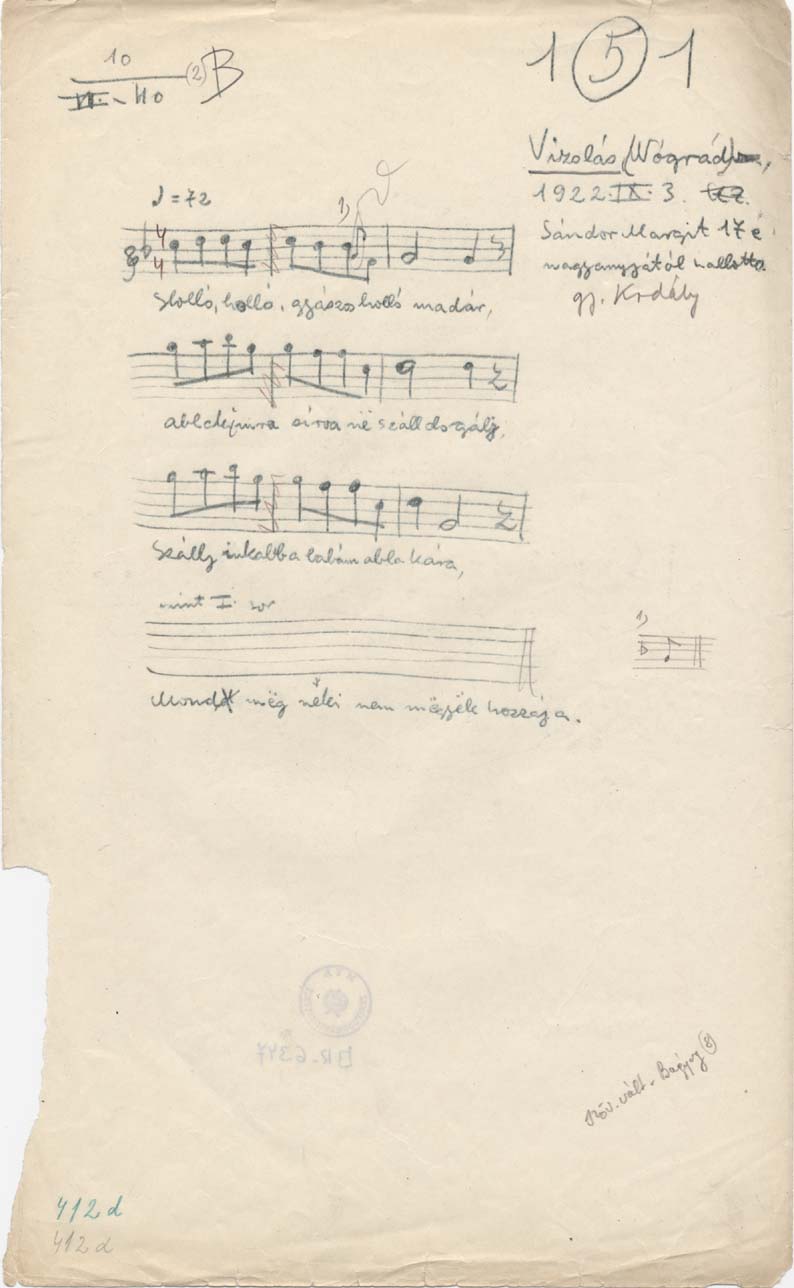 10
(2) B
II. - 40
1 5 1
Vizolás (Nógrád),
1922. IX. 3.
Sándor Margit 17 é
nagyanyjától hallotta.
gy.
♩ = 72
1)
4
4
Holló, holló, gyászos holló madár,
ablakjimra sírva në szálldogálj,
Szállj inkább a babám ablakára,
mint I. sor
1)
még néki nem mëgyëk hozzája.
BR. 6347
szöv. vált.
412 d
412 d